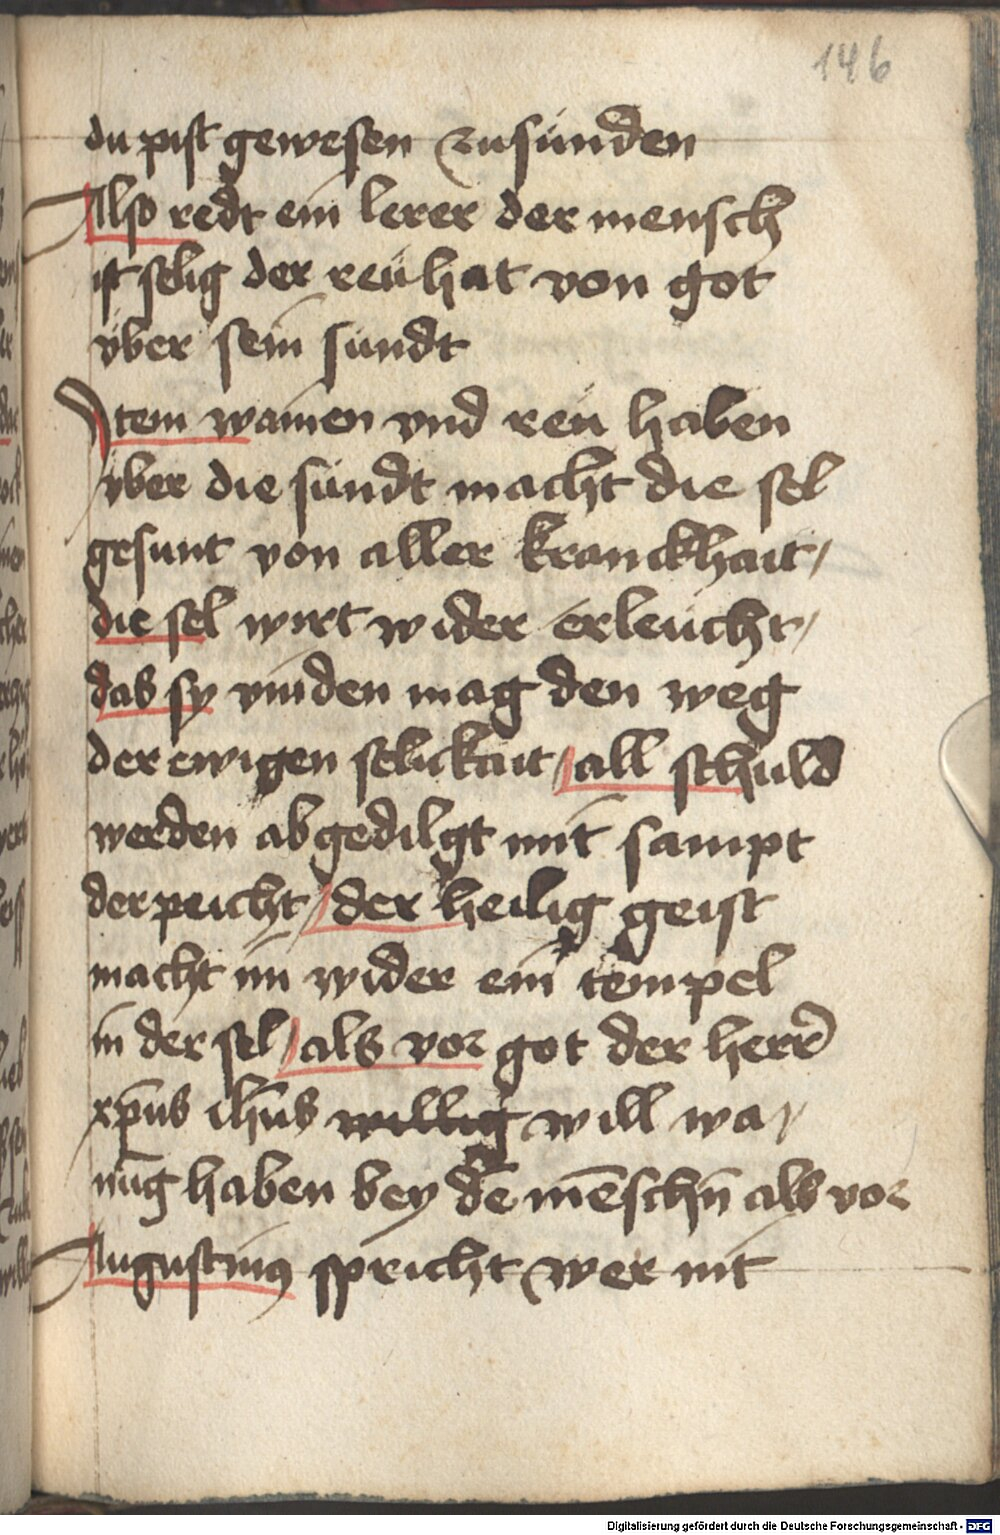 146
du pist gewesen zu sünden
Also redt ein lerer der mensch
ist selig der reü hat von got
vber sein sündt
Item wainen vnd reü haben
vber die sündt macht die sel
gesunt von aller kranckhait /
die sel wirt wider erleücht /
das sy vinden mag den weg
der ewigen selickait / all schuld
werden abgedilgt mit sampt
der peicht / der heilig geist
macht im wider ein tempel
in der sel / als vor got der herr̄
xp̄us ih̄us willig will wa /
nūg haben bey dē mēschn̄ als vor
Augustinus spricht wer nit
Digitalisierung gefördert durch die Deutsche Forschungsgemeinschaft - DFG